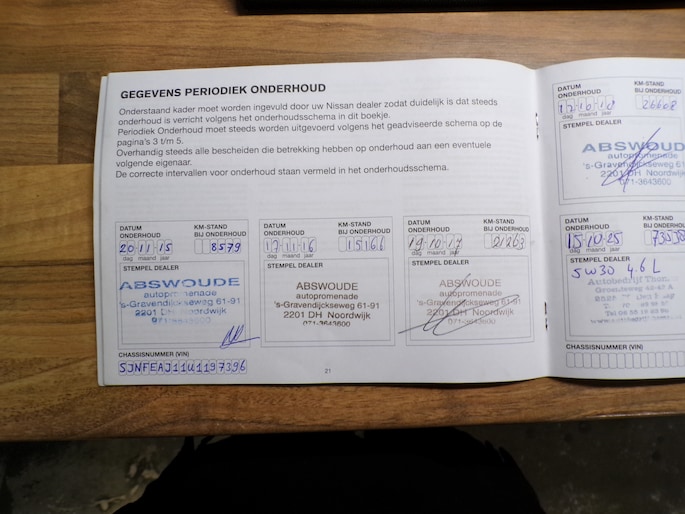 GEGEVENS PERIODIEK ONDERHOUD
Onderstaand kader moet worden ingevuld door uw Nissan dealer zodat duidelijk is dat steeds
onderhoud is verricht volgens het onderhoudsschema in dit boekje.
Periodiek Onderhoud moet steeds worden uitgevoerd volgens het geadviseerde schema op de
pagina's 3 t/m 5.
Overhandig steeds alle bescheiden die betrekking hebben op onderhoud aan een eventuele
volgende eigenaar.
De correcte intervallen voor onderhoud staan vermeld in het onderhoudsschema.
DATUM ONDERHOUD
KM-STAND BIJ ONDERHOUD
20-11-15 8579
dag maand jaar
STEMPEL DEALER
ABSWOUDE
autopromenade
's-Gravendijckseweg 61-91
2201 DH Noordwijk
071-3643600
CHASSISNUMMER (VIN)
SJNFEAJ11U1197396
DATUM ONDERHOUD
KM-STAND BIJ ONDERHOUD
17-11-16 15166
dag maand jaar
STEMPEL DEALER
ABSWOUDE
autopromenade
's-Gravendijckseweg 61-91
2201 DH Noordwijk
071-3643600
DATUM ONDERHOUD
KM-STAND BIJ ONDERHOUD
19-10-17 21263
dag maand jaar
STEMPEL DEALER
ABSWOUDE
autopromenade
's-Gravendijckseweg 61-91
2201 DH Noordwijk
21
DATUM ONDERHOUD
KM-STAND BIJ ONDERHOUD
26608
dag maand jaar
STEMPEL DEALER
ABSWOUDE
autopromenade
's-Gravendijckseweg 61
2201 DH Noordwijk
071-3643600
DATUM ONDERHOUD
KM-STAND BIJ ONDERHOUD
15-10-25 73538
dag maand jaar
STEMPEL DEALER
5W30 4.6 L
Autobedrijf
CHASSISNUMMER (VIN)